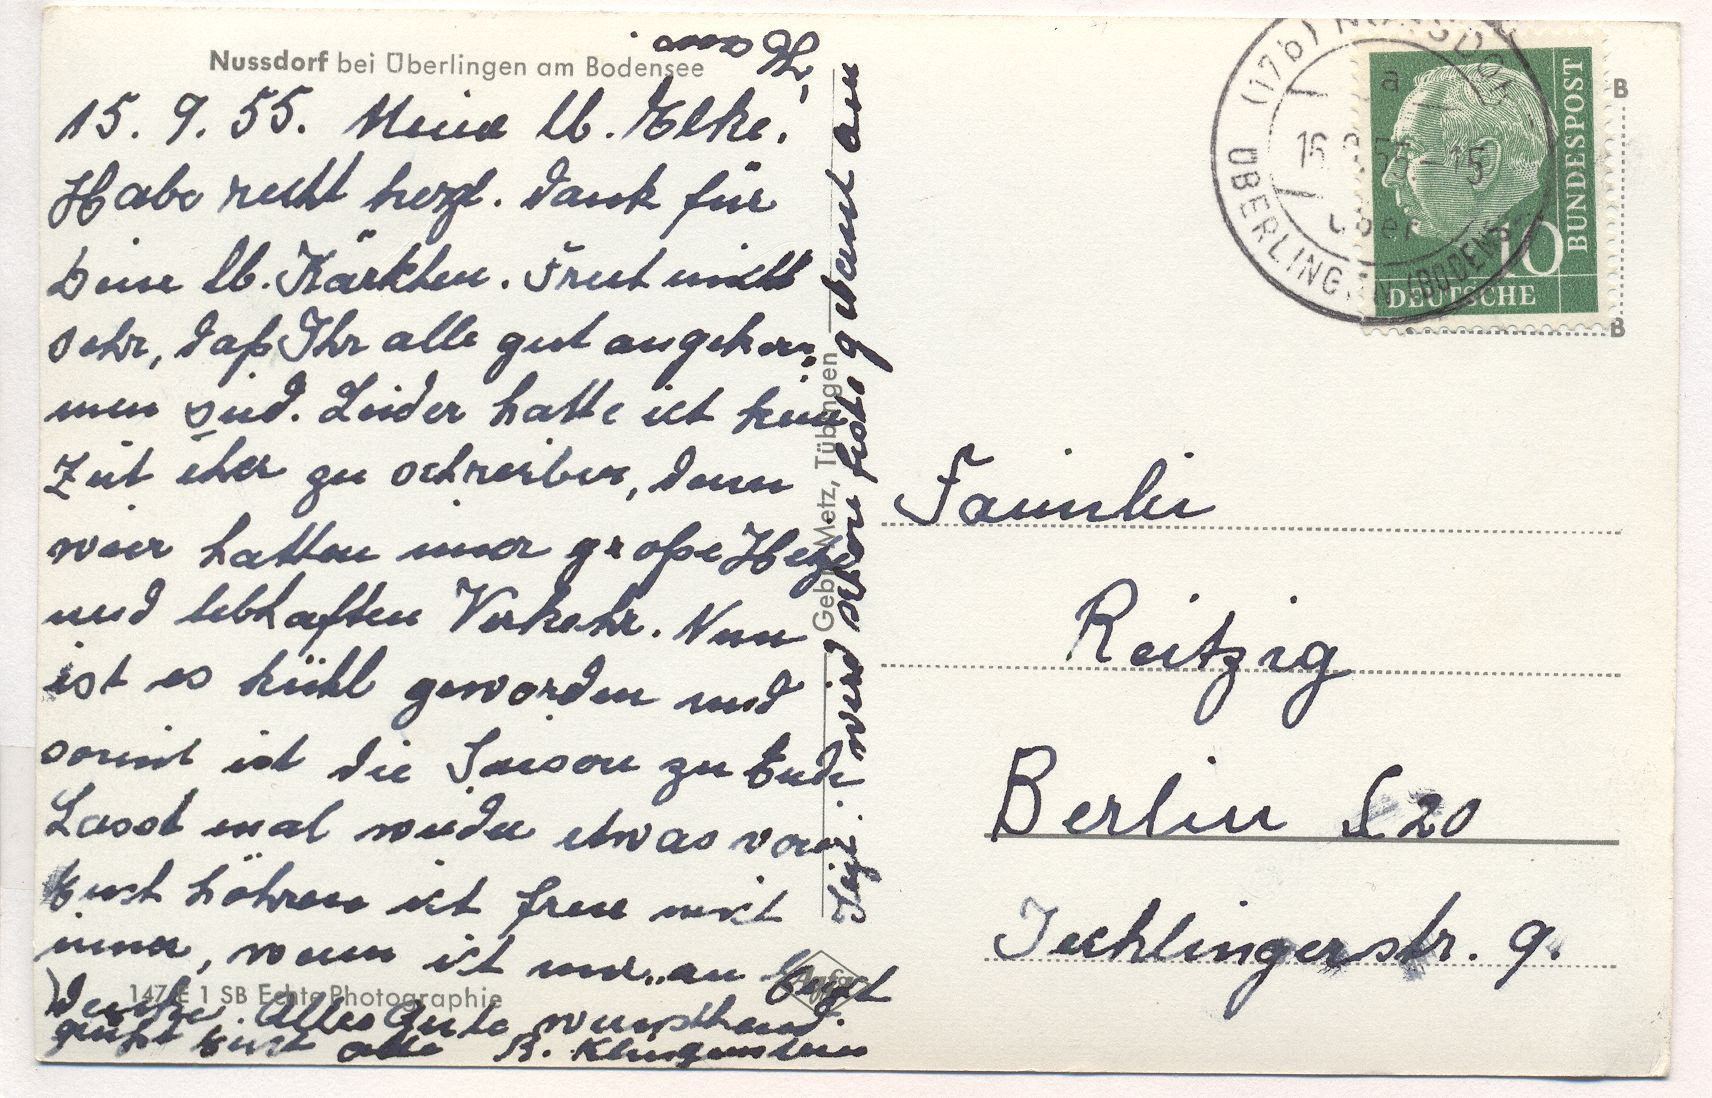 Nussdorf bei Überlingen am Bodensee
15. 9. 55. Meine lb. Elke!
Habe recht herzl. Dank für
Deine lb. Kärtchen. Freut mich
sehr, daß Ihr alle gut angekom-
men sind. Leider hatte ich kein
Zeit eher zu schreiben, denn
wir hatten immer große Hetze
und lebhaften Verkehr. Nun
ist es kühl geworden und
somit ist die Saison zu Ende
Lasst mal wieder etwas von
Euch höhren ich freue mich
immer, wenn ich nur an Euch
denke. Alles Gute wünschend
grüßt Euch alle R. Klingenstein
wird schon feste gebaut am
Haus.
Gebr. Metz, Tübingen
147 E 1 SB Echte Photographie
(17b) NUSSDORF
a
16.9.55-15
über
ÜBERLINGEN (BODENSEE)
10
DEUTSCHE
BUNDESPOST
B
B
Familie
Reitzig
Berlin S 20
Jechlingerstr. 9.